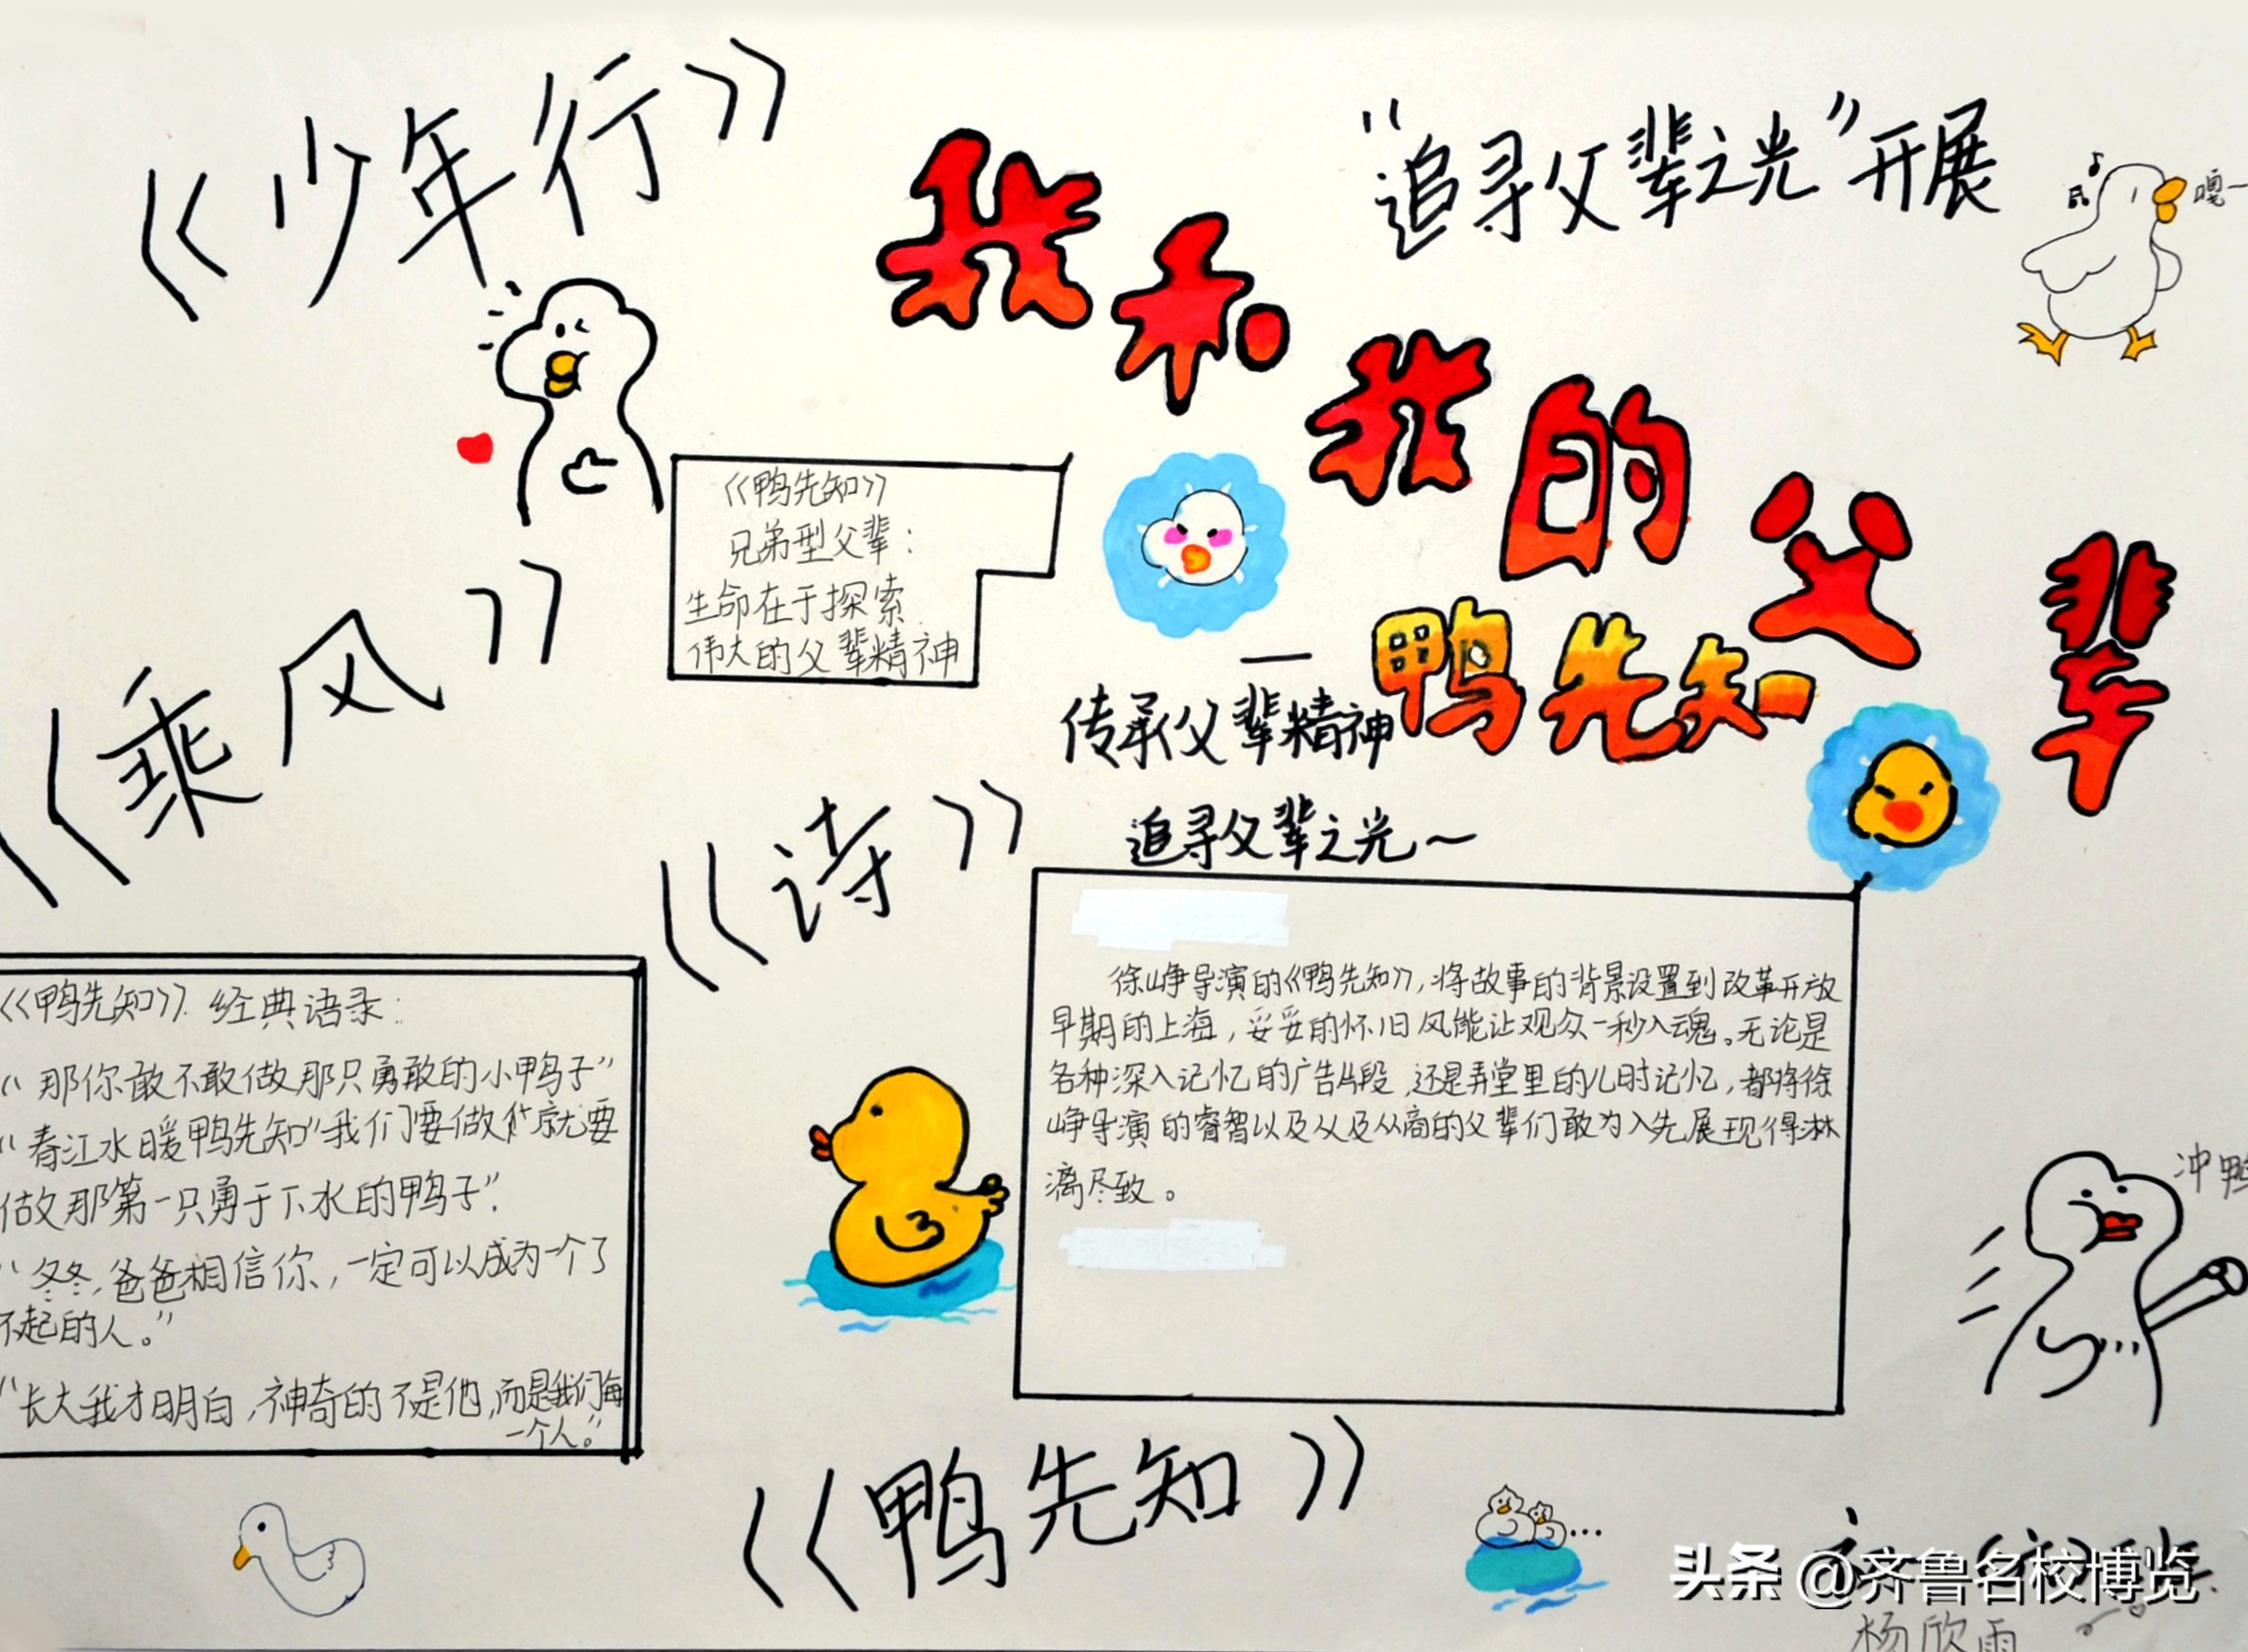 《少年行》
"追寻父辈之光"开展
嘎一
我和我的父辈
《鸭先知》
兄弟型父辈：
生命在于探索
伟大的父辈精神
《乘风》
一鸭先知
传承父辈精神
追寻父辈之光~
《诗》
徐峥导演的《鸭先知》，将故事的背景设置到改革开放
早期的上海，妥妥的怀旧风能让观众一秒入魂。无论是
各种深入记忆的广告片段，还是弄堂里的儿时记忆，都将徐
峥导演的睿智以及从及从商的父辈们敢为入先展现得淋
漓尽致。
《鸭先知》经典语录：
"那你敢不敢做那只勇敢的小鸭子"
"春江水暖鸭先知"我们要做就要
做那第一只勇于下水的鸭子".
"冬冬，爸爸相信你，一定可以成为一个了
不起的人。"
"长大我才明白，神奇的不是他，而是我们每
一个人。"
冲鸭
《鸭先知》
头条 @齐鲁名校博览
杨欣雨